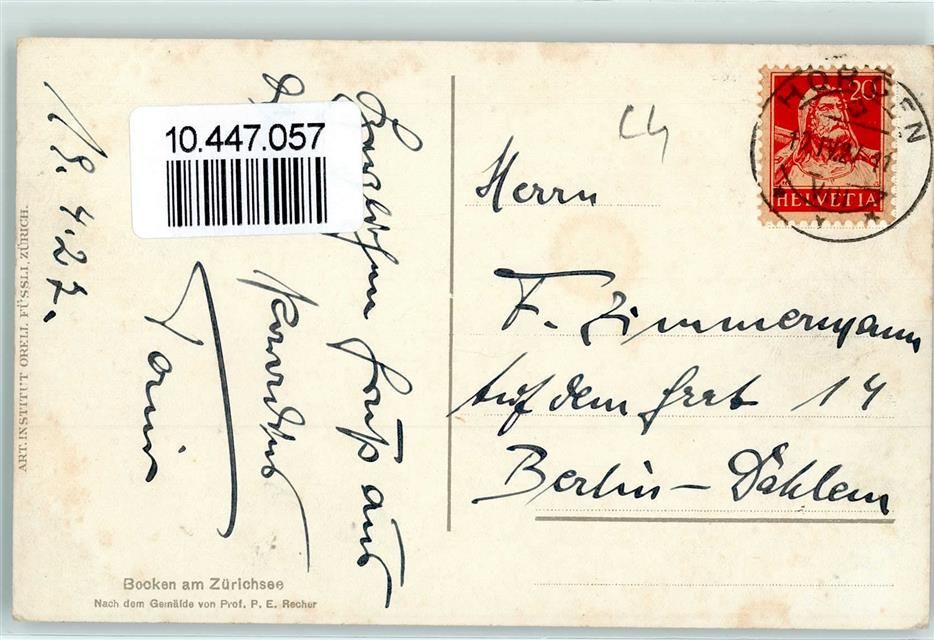 10.447.057
18.4.27.
Gruß aus
20
HELVETIA
HORGEN
Herrn
F. Zimmermann
Auf dem Grat 14
Berlin-Dahlem
Bocken am Zürichsee
Nach dem Gemälde von Prof. P. E. Recher
ART. INSTITUT ORELL FÜSSLI, ZÜRICH.